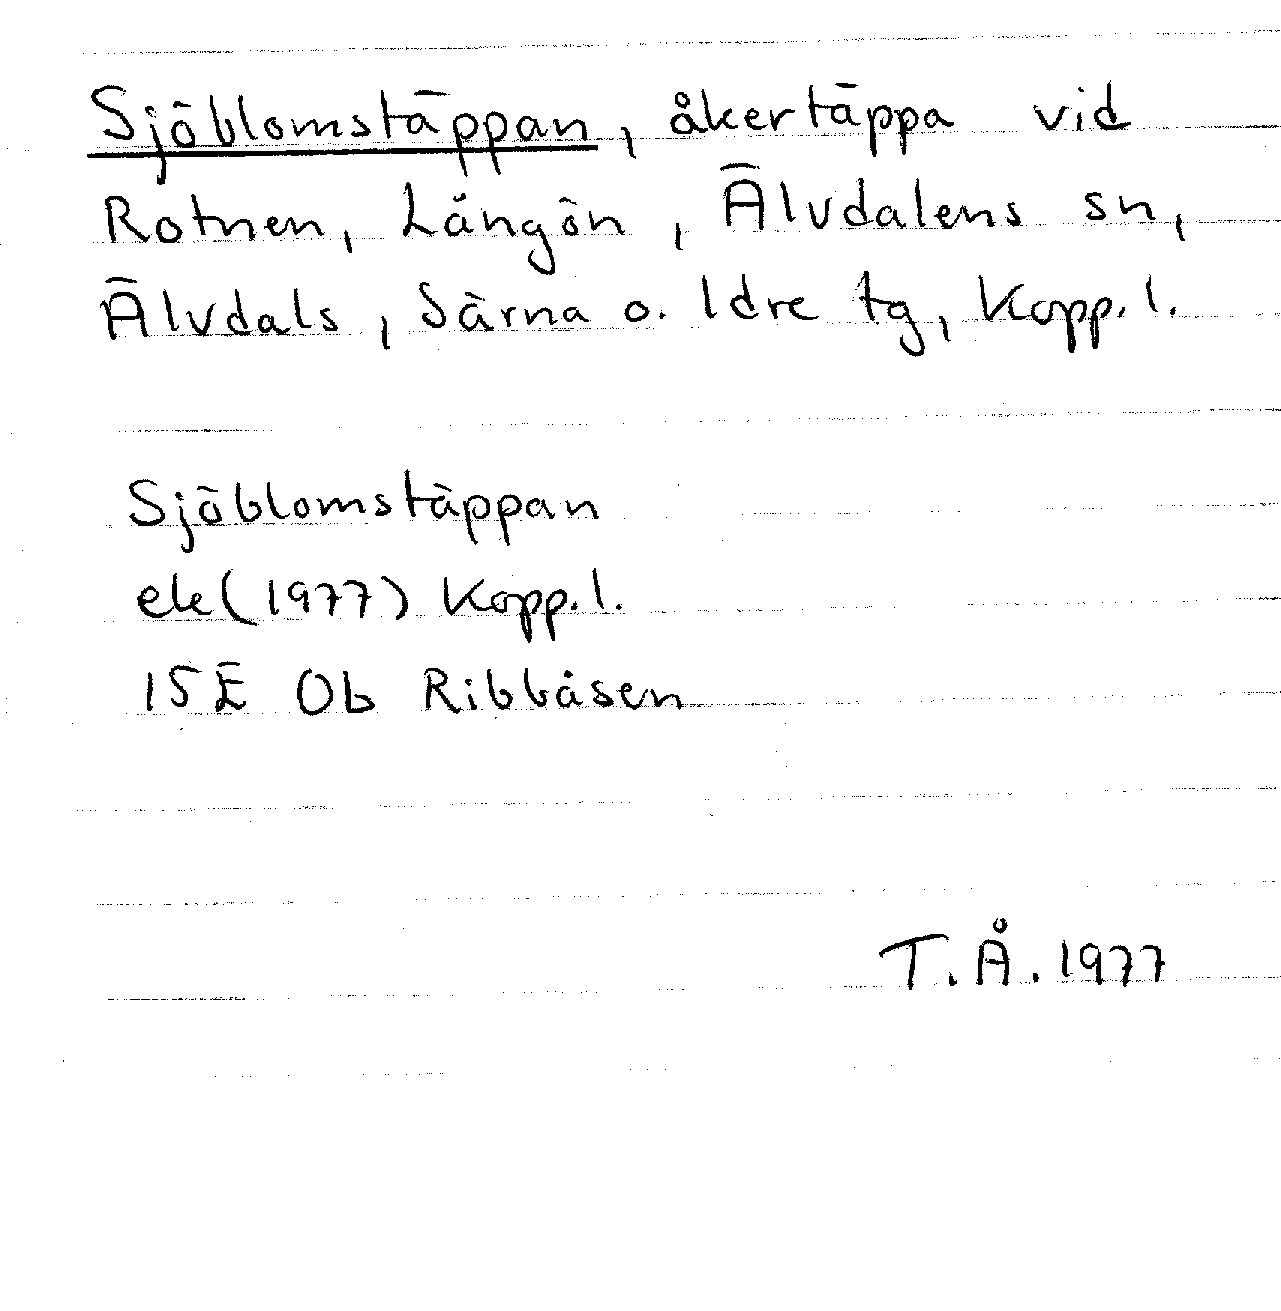 Sjöblomstäppan, åkertäppa vid
Rotnen, Långön, Älvdalens sn,
Älvdals, Särna o. Idre tg, Kopp. l.
Sjöblomstäppan
ek (1977) Kopp. l.
15E 0b Ribbåsen
T.Å. 1977